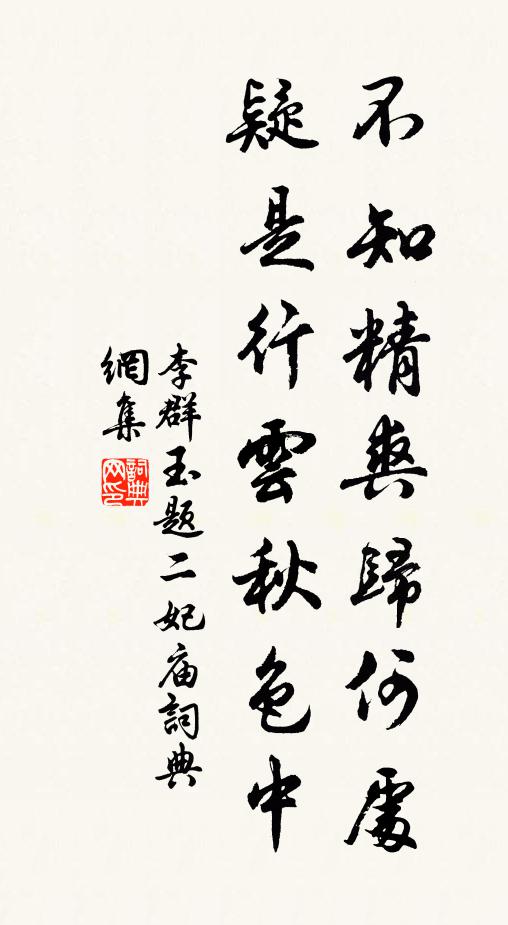 不知精爽歸何處
疑是行雲秋色中
李群玉题二妃庙詞典
網集
詞典
网印